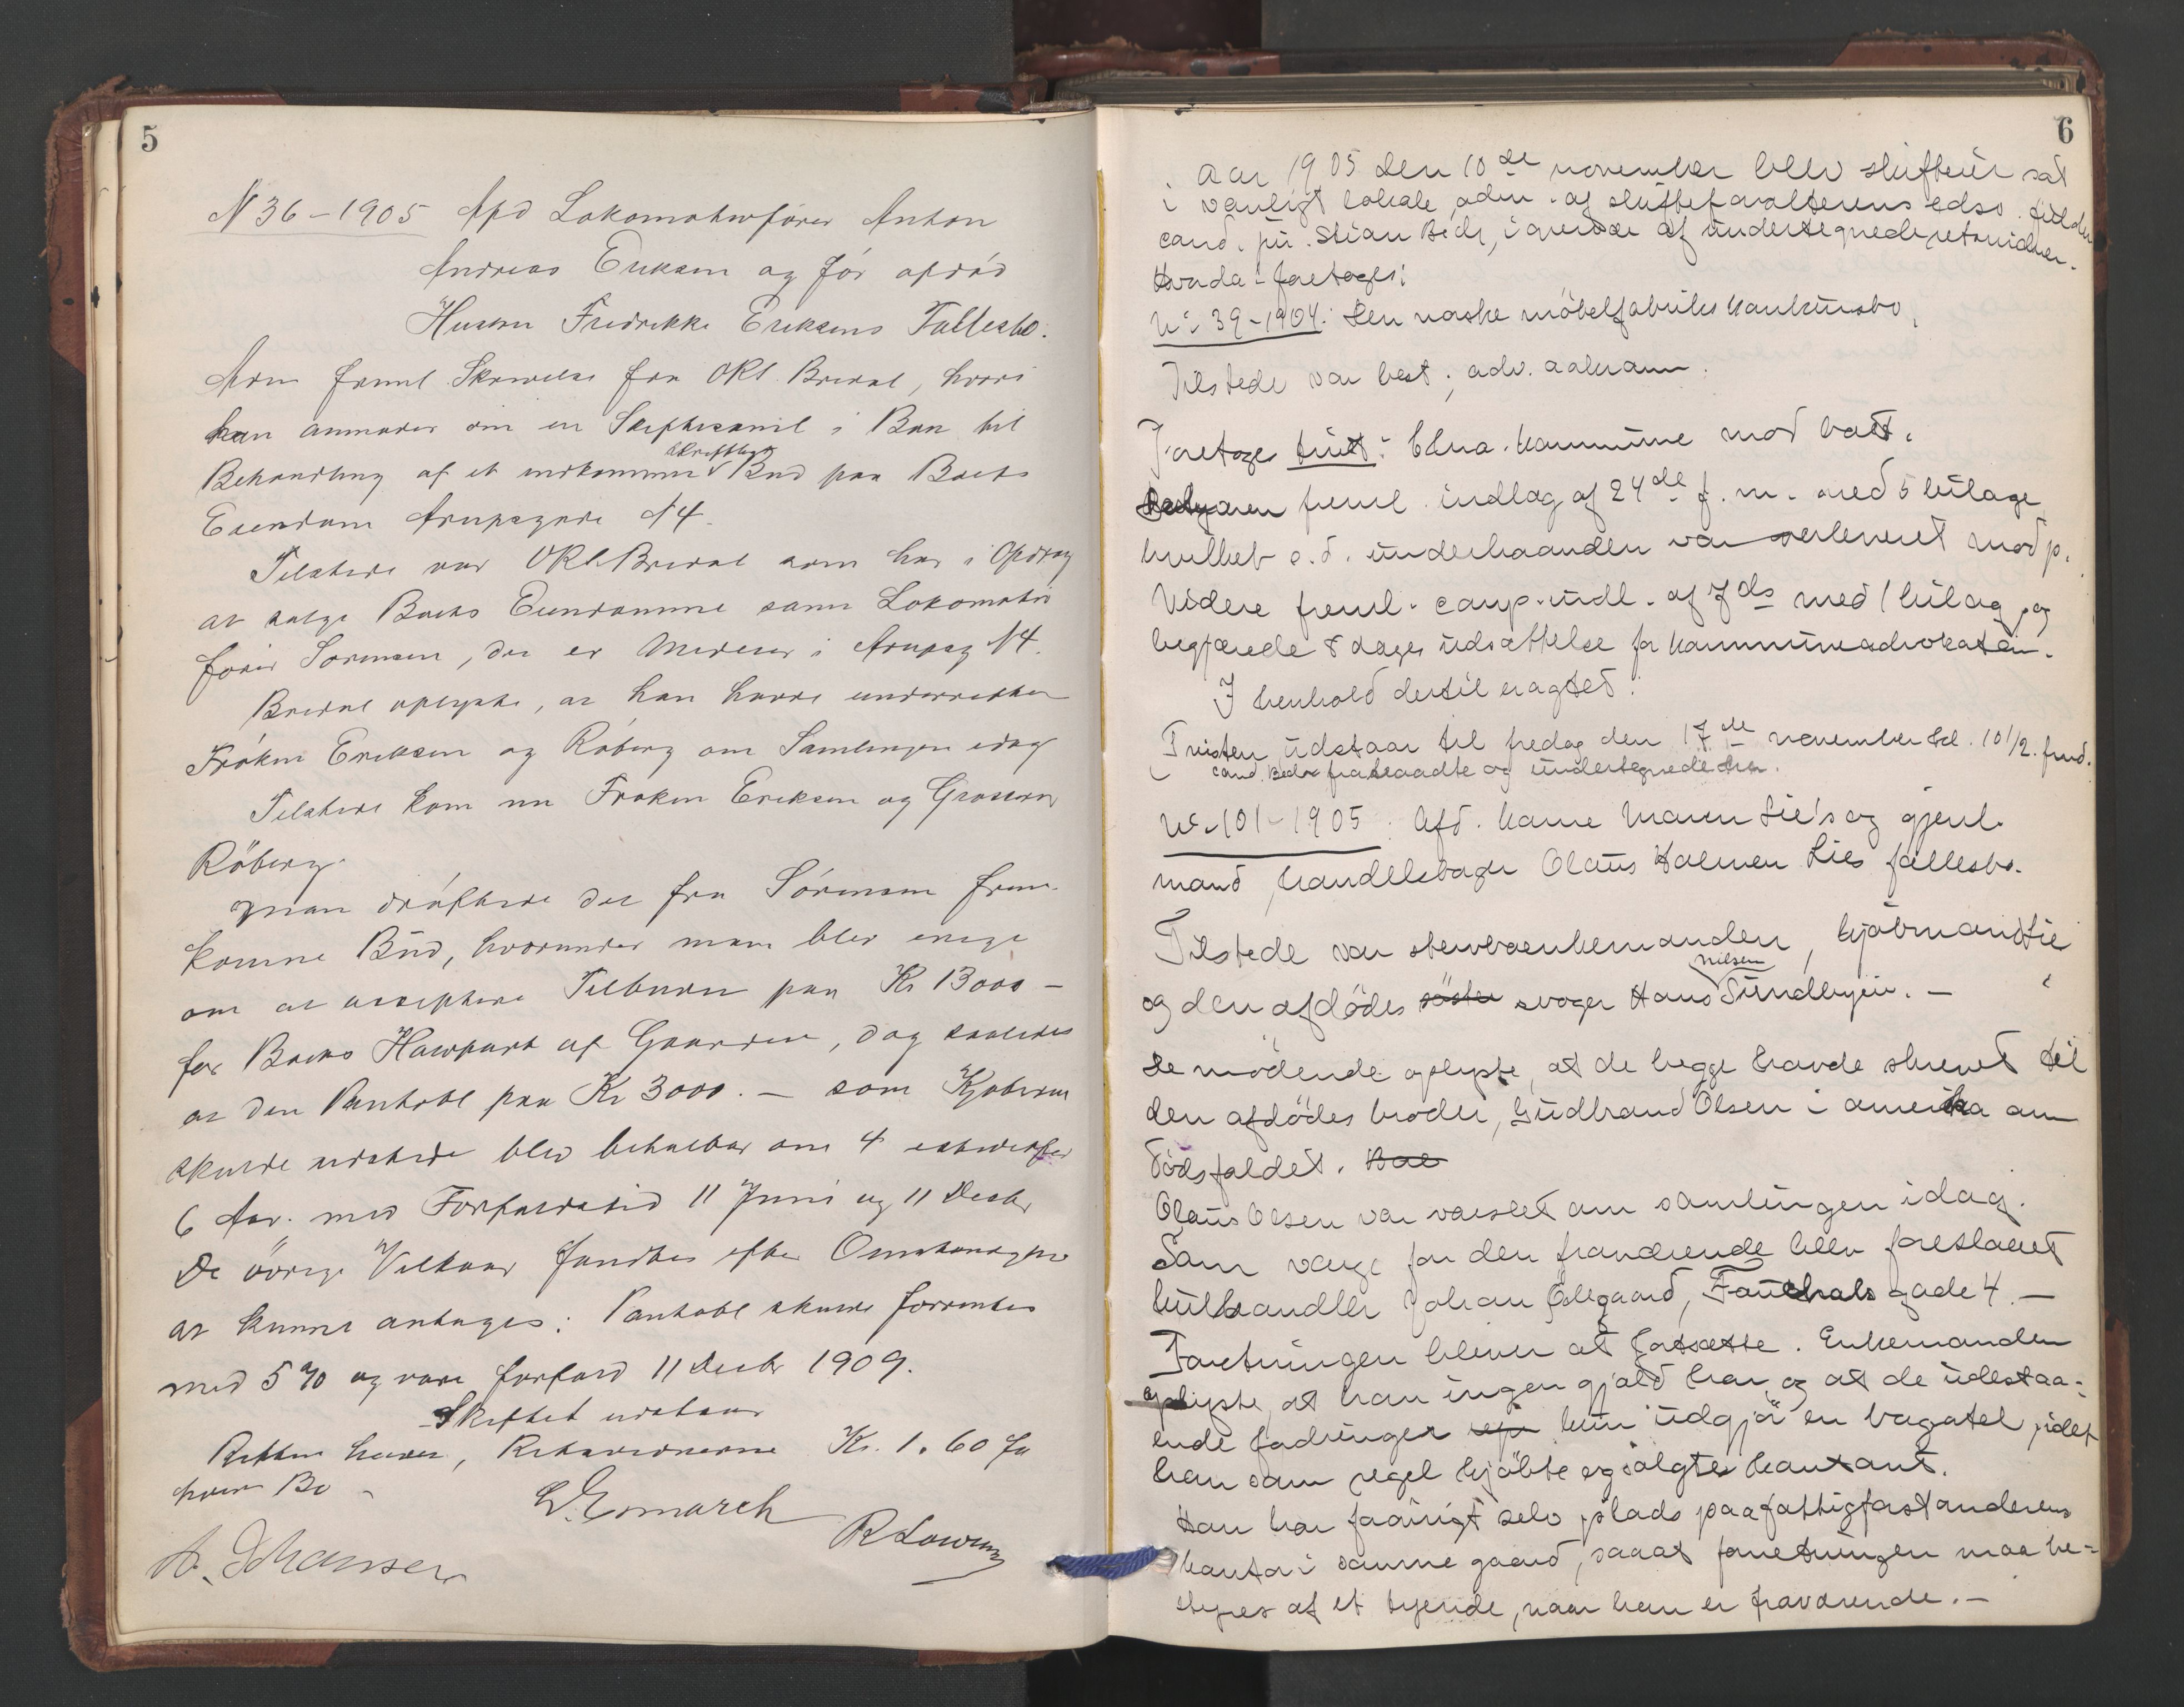 5
N 36 – 1905 Afd Lokomotivfører Anton
Andreas Eriksen og før afdød
Hustru Fredrikke Eriksens Fællesbo.
Adm freml Skrivelse fra ORS. Bredal, hvori
han anmoder om en Skiftesaml i Boet til
Behandling af et indkommet skriftligt Bud paa Boets
Eiendom Arupsgade N4.
Tilstede var ORS. Bredal som har i Opdrag
at sælge Boets Eiendomme samt Lokomotiv
fører Sørensen, der er Medeier i Arupsg N4.
Bredal oplyste, at han havde underrettet
Frøken Eriksen og Røberg om Samlingen idag
Tilstede kom nu Frøken Eriksen og Grosserer
Röberg.
Man drøftede det fra Sørensen frem-
komne Bud, hvorunder man blev enige
om at acceptere Tilbudet paa Kr 13000 –
for Boets Halvpart af Gaarden, dog saaledes
at den Pantobl paa Kr 3000. – som Kjøberen
skulde udstede blev betalbar om 4 istedetfor
6 Aar. med Forfaldstid 11 Juni og 11 Decbr
De øvrige Vilkaar fandtes efter Omstændighe
at kunne antages: Pantobl skulde forrentes
med 5 % og være forfald 11 Decbr 1909.
Skiftet udstaar
Retten hævet, Retsvidnerne Kr. 1.60 fra
hvert Bo –
L. Esmarch
R Lowum
A. Johansen
6
Aar 1905 den 10de november blev skifteret sat
i vanligt lokale, adm. af skifteforvalterens edsv. fuldm
cand. jur. Stian Bech, i overvær af undertegnede retsvidner.
Hvorda foretoges:
No. 39-1904: Den norske möbelfabriks konkursbo,
Tilstede var best; adv. Aakrann.
Foretoges tvist: Chra. kommune mod boet.
Bestyreren freml. indlæg af 24de f. m. med 5 bilage
hvilket s. d. underhaanden var overleveret modp.
Videre freml. comp. indl. af 7ds med 1 bilag, og
begjærede 8 dages udsættelse for kommuneadvokaten.
I henhold dertil eragtet:
Tvisten udstaar til fredag den 17de november kl. 10 1/2. fmd.
cand. Bech fratraadte og undertegnede tra.
No. 101-1905. Afd. kone Maren Lie's og gjenl.
mand, handelsbager Olaus Halvor Lies fællesbo.
Tilstede var stervboenkemanden, kjøbmand Lie
og den afdødes söster svoger Hans Nilsen Sundbyeie. –
De mödende oplyste, at de begge havde skrevet til
den afdödes broder, Gudbrand Olsen i amerika om
dödsfaldet. Boe
Olaus Olsen var varslet om samlingen idag.
Som værge for den fraværende blev foreslaaet
kulhandler Johan Ödegaard, Fauchals gade 4. –
Forretningen bliver at fortsætte. Enkemanden
oplyste, at han ingen gjæld har og at de udestaa-
ende fordringer kun udgjör en bagatel, idet
han som regel kjöbte og solgte kontant.
Han har forövrigt selv plads paa fattigforstanderens
kontor i samme gaard, saaat forretningen maa be-
styres af et tyende, naar han er fraværende. –